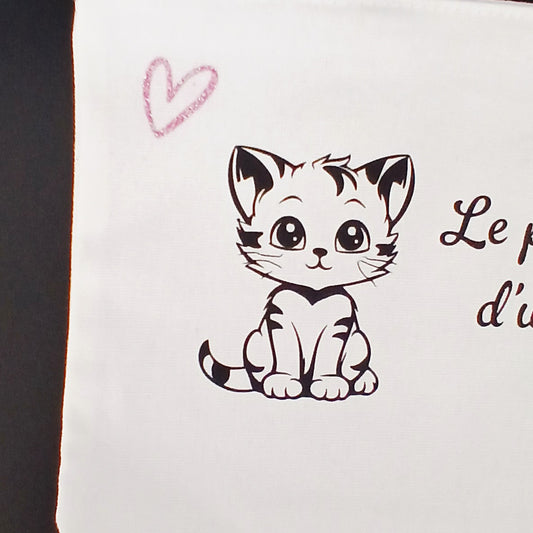 Le
d'u